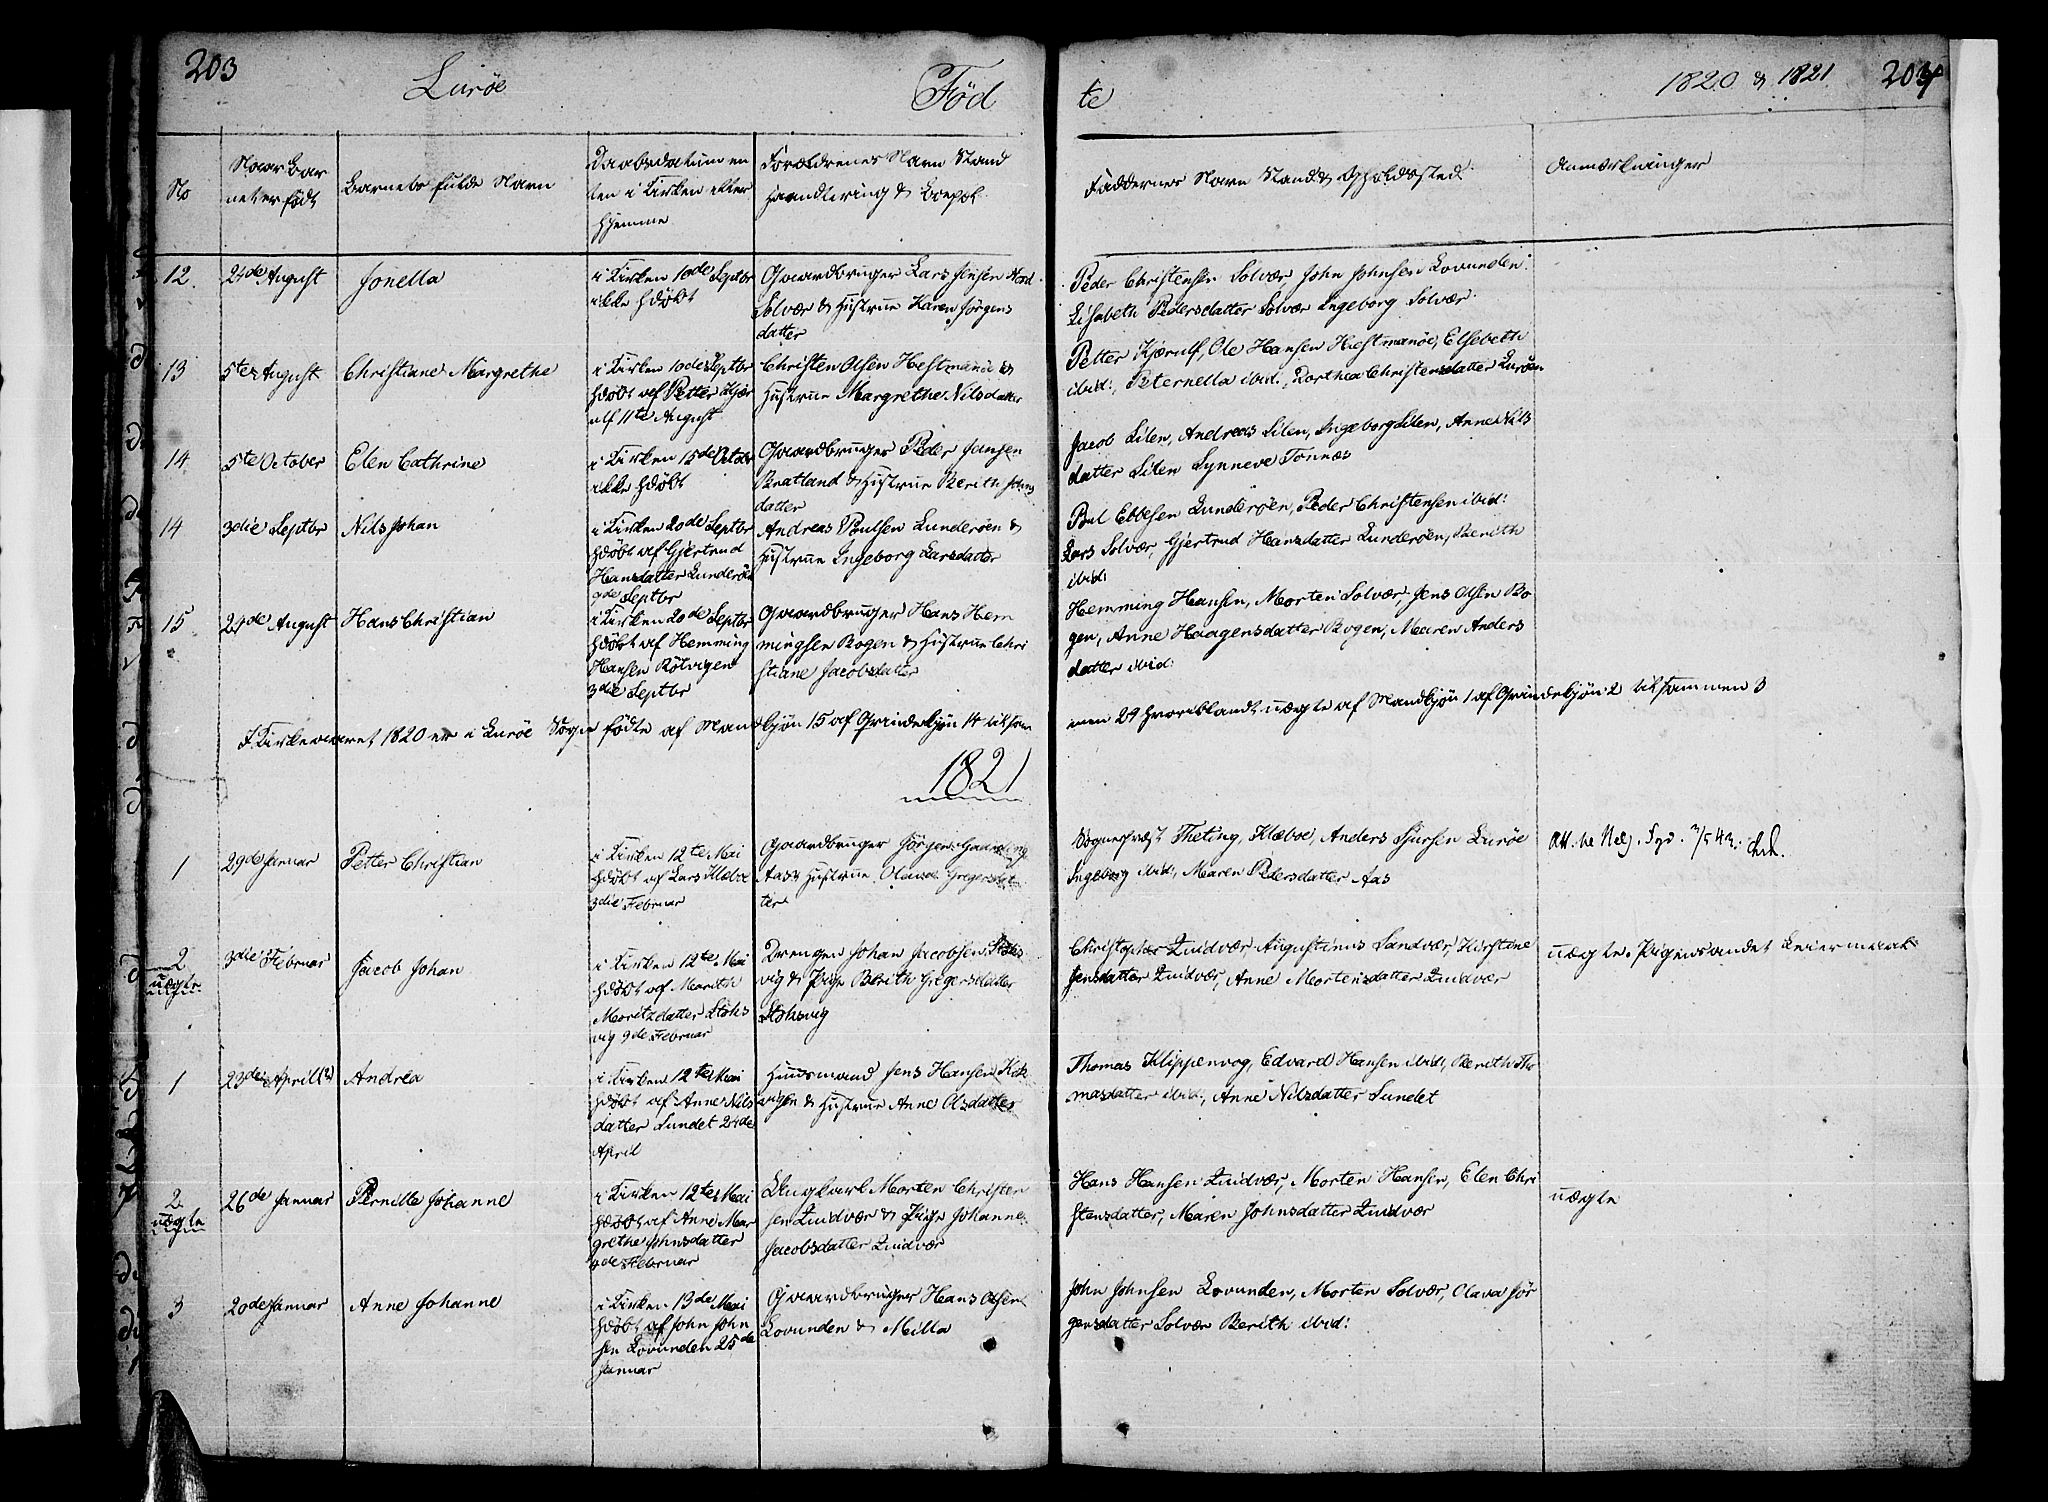 203
Lurøe
Fød
te
1820 & 1821
204
No
Naar Bar
net er født
Barnets fulde Navn
Daabsdatum en
ten i Kirken eller
hjemme
Forældrenes Navn Stand
Haandtering & Boepæl
Faddernes Navn Stand & Opholdssted
Anmærkninger
12.
24de August
Jonella
i Kirken 10de Septbr
ikke hdøbt
Gaardbruger Lars Jensen Nord
Solvær & Hustrue Karen Jørgens
datter
Peder Christensen Solvær, John Johnsen Lovunden
Lisabeth Pedersdatter Solvær Ingeborg Solvær
13
5te August
Christiane Margrethe
i Kirken 10de Septbr
hdøbt af Petter Kjær
ulf 11te August
Christen Olsen Hestmanøe &
Hustrue Margrethe Nilsdatter
Petter Kjærulf, Ole Hansen Hestmanøe, Elsebeth
ibid:, Peternella ibid:, Dorthea Christensdatter Lurøen
14
5te October
Elen Cathrine
i Kirken 15de Octobr
ikke hdøbt
Gaardbruger Peder Jansen
Bratland & Hustrue Berith Jens
datter
Jacob Silen, Andreas Silen, Ingeborg Silen, Anne Nils
datter Silen Synneve Tonnæs
14
3die Septbr
Nils Johan
i Kirken 20de Septbr
hdøbt af Gjertrud
Hansdatter Lunderøen
9de Septbr
Andreas Poulsen Lunderøen &
Hustrue Ingeborg Larsdatter
Poul Ebbesen Lunderøen, Peder Christensen ibid:
Lars Solvær, Gjertrud Hansdatter Lunderøen, Berith
ibid:
15
24de August
Hans Christian
i Kirken 20de Septbr
hdøbt af Hemming
Hansen Rötvigen
3die Septbr
Gaardbruger Hans Hem
mingsen Bogen & Hustrue Chri
stiane Jacobsdatter
Hemming Hansen, Morten Solvær, Jens Olsen Bo
gen, Anne Haagensdatter Bogen, Maren Anders
datter ibid:
I Kirkeaaret 1820 er i Lurøe Sogn fødte af Mandkjøn 15 af Qvindekjøn 14 tilsam
men 29 hvoriblandt uægte af Mandkjøn 1 af Qvindekjøn 2 tilsammen 3
1821
1
29de Januar
Petter Christian
i Kirken 12te Mai
hdøbt af Lars Klæboe
3die Februar
Gaardbruger Jørgen Haars
Aas & Hustrue Olava Gregersdat
ter
Sogneprest Theting, Klæboe, Anders Sjursen Lurøe
Ingeborg ibid:, Maren Pedersdatter Aas
2
uægte
3die Februar
Jacob Johan
i Kirken 12te Mai
hdøbt af Marith
Moritzdatter Stoks
vig 9de Februar
Drengen Johan Jacobsen Stoks
vig & Pige Berith Gregersdatter
Stoksvig
Christopher Zindvær, Augustinus Sandvær, Kirstine
Jensdatter Zindvær, Anne Mortensdatter Zindvær
uægte. Pigens andet Leiermaal
1
23de April
Andrea
i Kirken 12te Mai
hdøbt af Anne Nils
datter Sundet 24de
April
Huusmand Jens Hansen Kok
vigen & Hustrue Anne Olsdatter
Thomas Klippenvog, Edvard Hansen ibid:, Berith Tho
masdatter ibid:, Anne Nilsdatter Sundet
2
uægte
26de Januar
Pernille Johanne
i Kirken 12te Mai
hdøbt af Anne Mar
grethe Johnsdatter
4de Februar
Ungkarl Morten Christen
sen Zindvær & Pige Johanne
Jacobsdatter Zindvær
Hans Hansen Zindvær, Morten Hansen, Elen Chri
stensdatter, Maren Johnsdatter Zindvær
uægte
3
20de Januar
Anne Johanne
i Kirken 13de Mai
hdøbt af John John
sen Lovunden 25de
Januar
Gaardbruger Hans Olsen
Lovunden & Milla
John Johnsen Lovunden, Morten Solvær, Olava Jør
gensdatter Solvær Berith ibid: